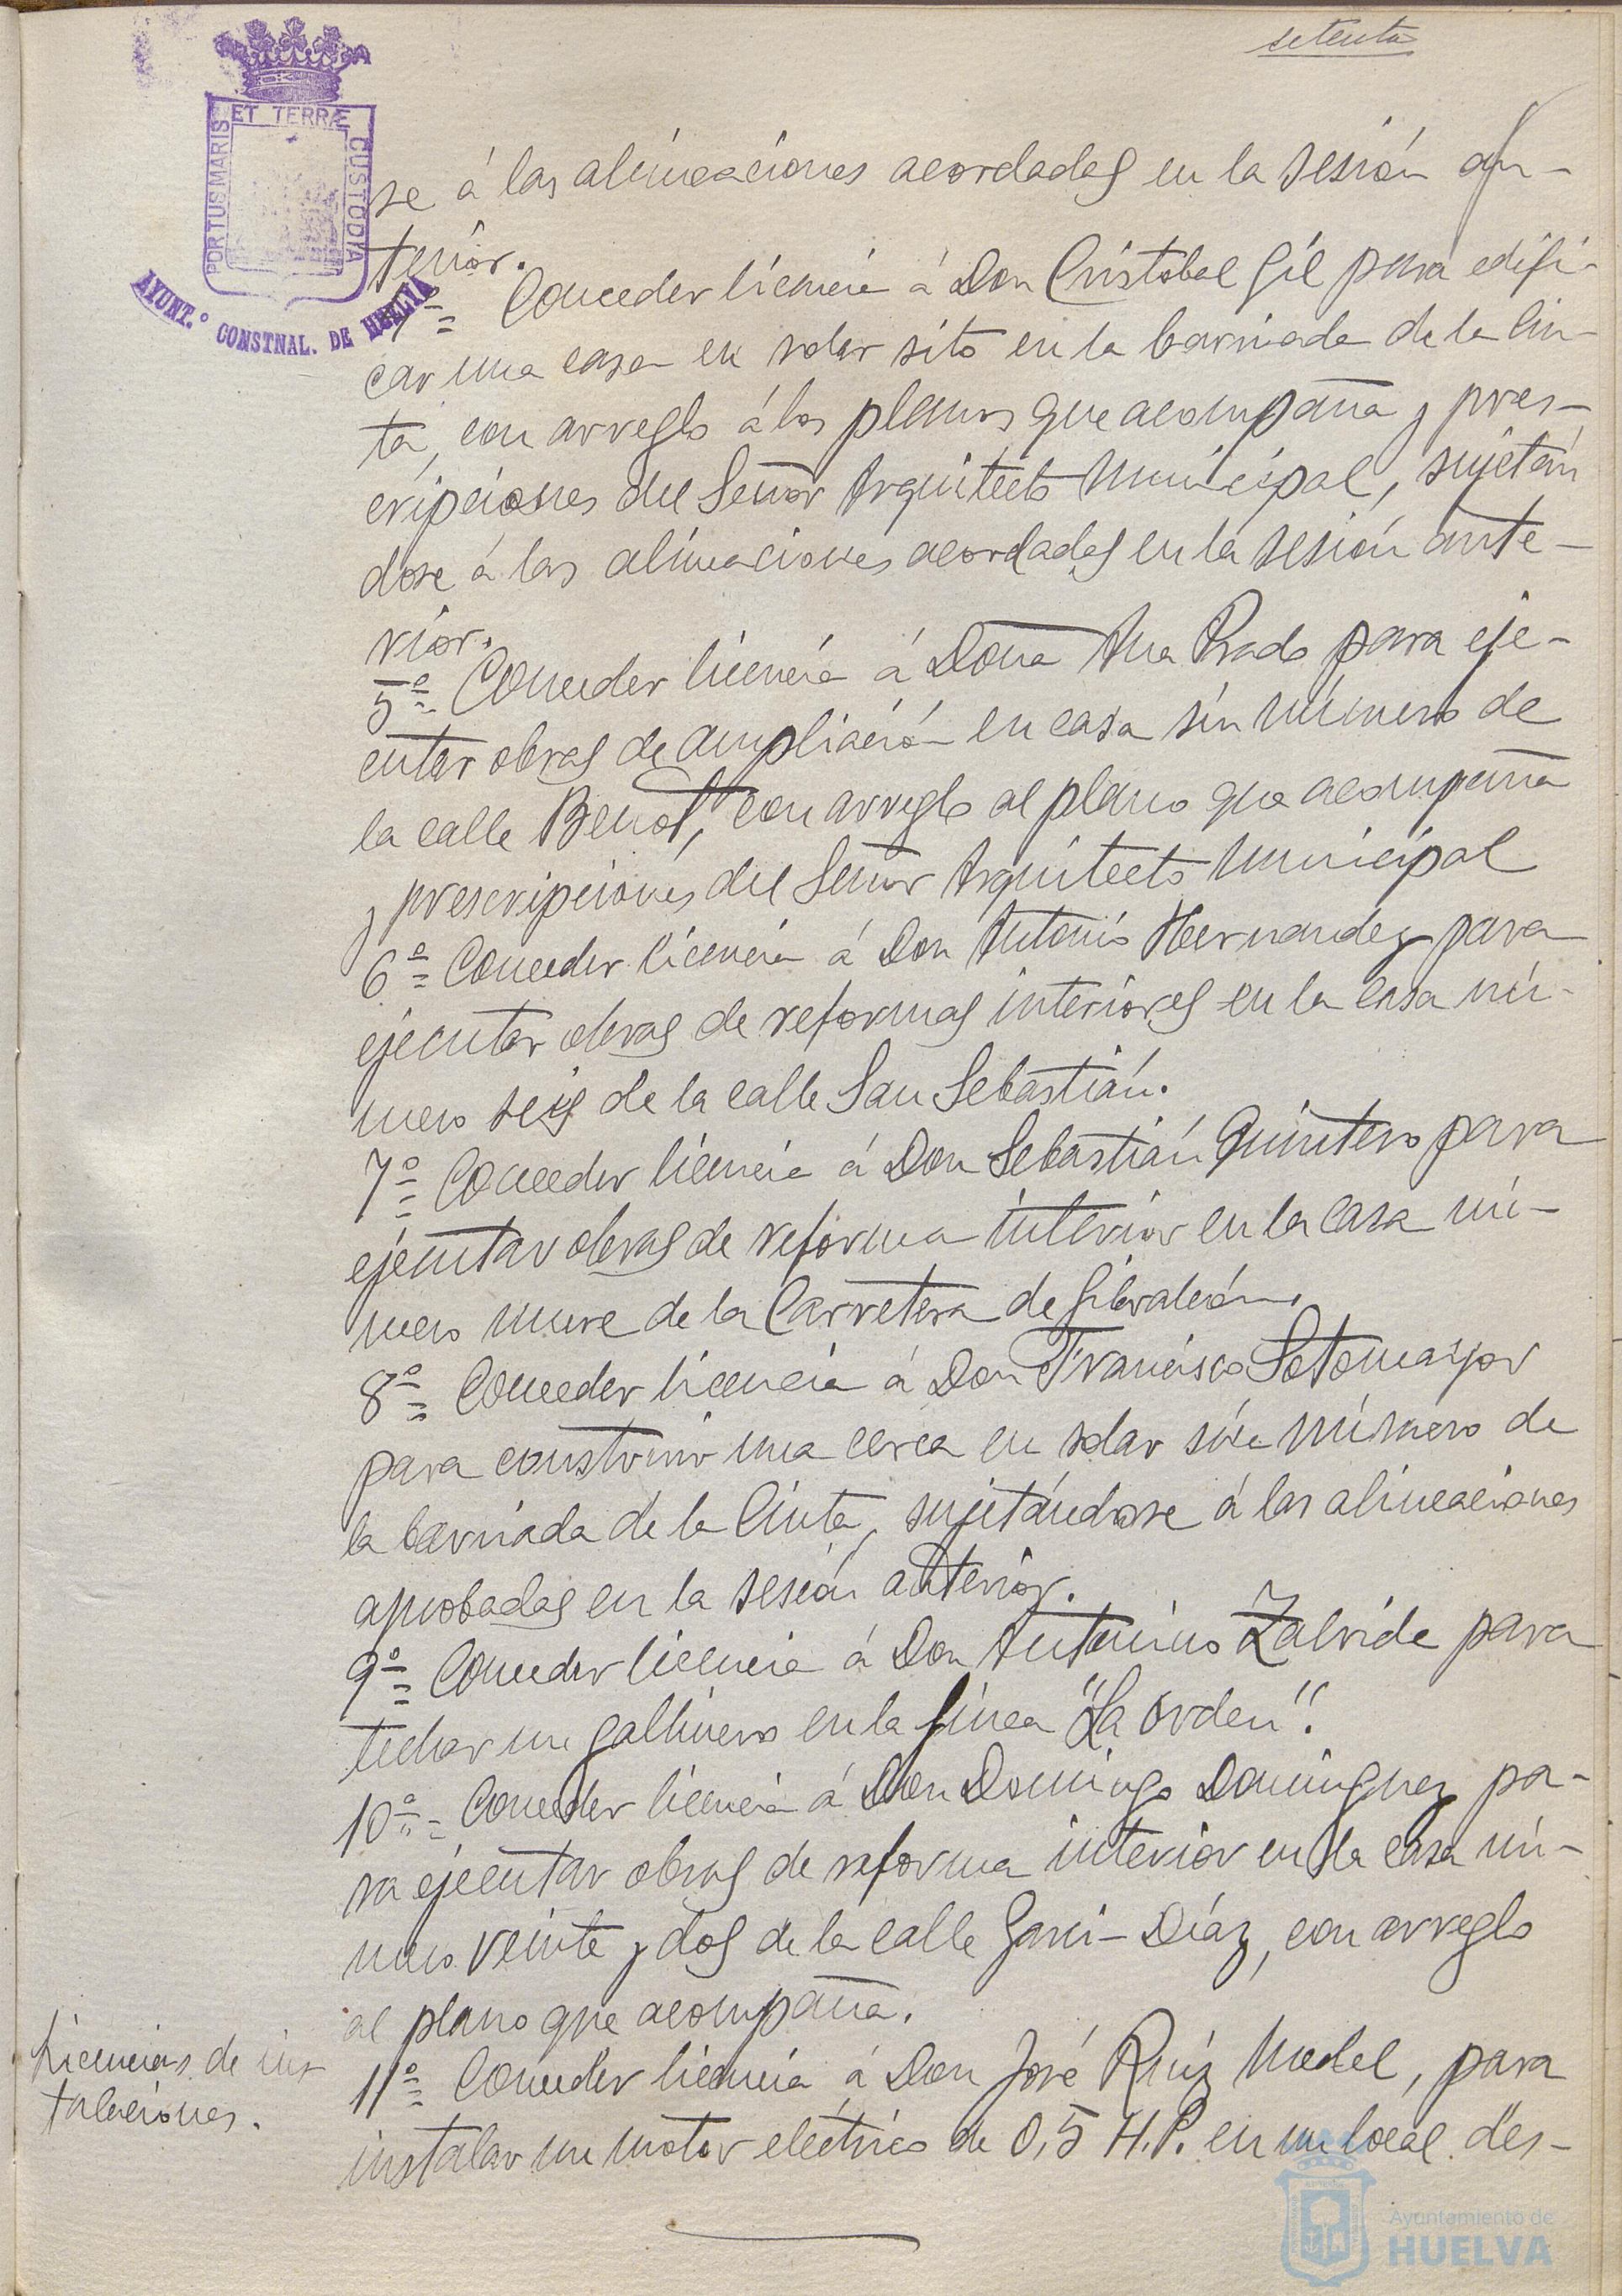 setenta
PORTUS MARIS ET TERRÆ CUSTODIA
AYUNT.º CONSTNAL. DE HUELVA
se á las alineaciones acordadas en la sesión an-
terior.
4º= Conceder licencia á Don Cristobal Gil para edifi-
car una casa en solar sito en la barriada de la Cin-
ta, con arreglo á los planos que acompaña y pres-
cripciones del Señor Arquitecto Municipal, sujetán
dose á las alineaciones acordadas en la sesión ante-
rior.
5º= Conceder licencia á Doña Ana Prado para eje-
cutar obras de ampliación en casa sin número de
la calle Benot, con arreglo al plano que acompaña
y prescripciones del Señor Arquitecto Municipal
6º= Conceder licencia á Don Antonio Hernandez para
ejecutar obras de reformas interiores en la casa nú-
mero seis de la calle San Sebastián.
7º= Conceder licencia á Don Sebastián Quintero para
ejecutar obras de reforma interior en la casa nú-
mero nueve de la Carretera de Gibraleón.
8º= Conceder licencia á Don Francisco Sotomayor
para construir una cerca en solar sin número de
la barriada de la Cinta, sujetándose á las alineaciones
aprobadas en la sesión anterior.
9º= Conceder licencia á Don Antonino Zalvide para
techar un gallinero en la finca "La Orden".
10º= Conceder licencia á Don Domingo Dominguez pa-
ra ejecutar obras de reforma interior en la casa nú-
mero veinte y dos de la calle Garci-Díaz, con arreglo
al plano que acompaña.
Licencias de ins
talaciones.
11º= Conceder licencia á Don José Ruiz Medel, para
instalar un motor eléctrico de 0,5 H.P. en un local des-
Ayuntamiento de
HUELVA